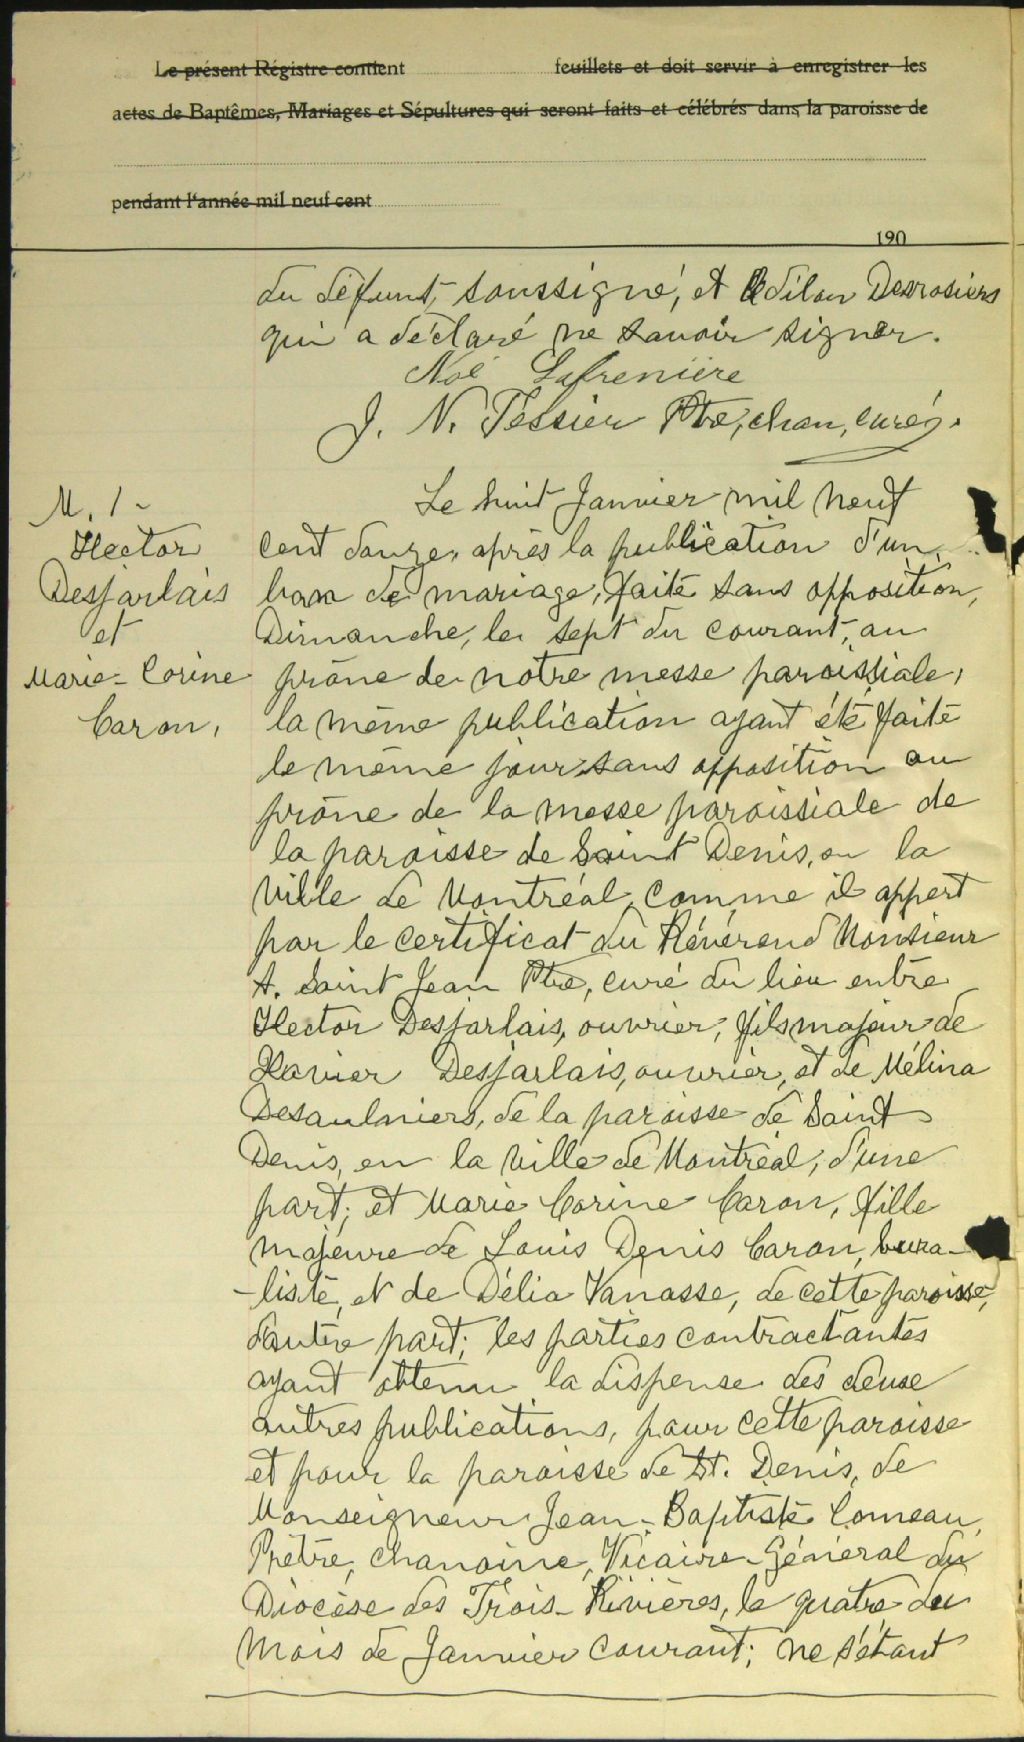 Le présent Régistre contient feuillets et doit servir à enregistrer les
actes de Baptêmes, Mariages et Sépultures qui seront faits et célébrés dans la paroisse de
pendant l'année mil neuf cent
190
du défunt, soussigné, et Odilon Desrosiers
qui a déclaré ne savoir signer.
Noé Lafrenière
J. N. Tessier Ptre, chan, curé.
M. 1-
Hector
Desjarlais
et
Marie-Corine
Caron,
Le huit Janvier mil neuf
cent douze, après la publication d'un
ban de mariage, faite sans opposition,
Dimanche, le sept du courant, au
prône de notre messe paroissiale,
la même publication ayant été faite
le même jour sans opposition au
prône de la messe paroissiale de
la paroisse de Saint Denis, en la
Ville de Montréal, comme il appert
par le certificat du Révérend Monsieur
A. Saint Jean Ptre, curé du lieu entre
Hector Desjarlais, ouvrier, fils majeur de
Xavier Desjarlais, ouvrier, et de Mélina
Desaulniers, de la paroisse de Saint
Denis, en la Ville de Montréal, d'une
part; et Marie Corine Caron, fille
majeure de Louis Denis Caron, bura-
-liste, et de Délia Vanasse, de cette paroisse,
d'autre part; les parties contractantes
ayant obtenu la dispense des deux
autres publications, pour cette paroisse
et pour la paroisse de St. Denis, de
Monseigneur Jean-Baptiste Comeau,
Prêtre, chanoine, Vicaire-Général du
Diocèse des Trois-Rivières, le quatre du
mois de Janvier courant; ne s'étant